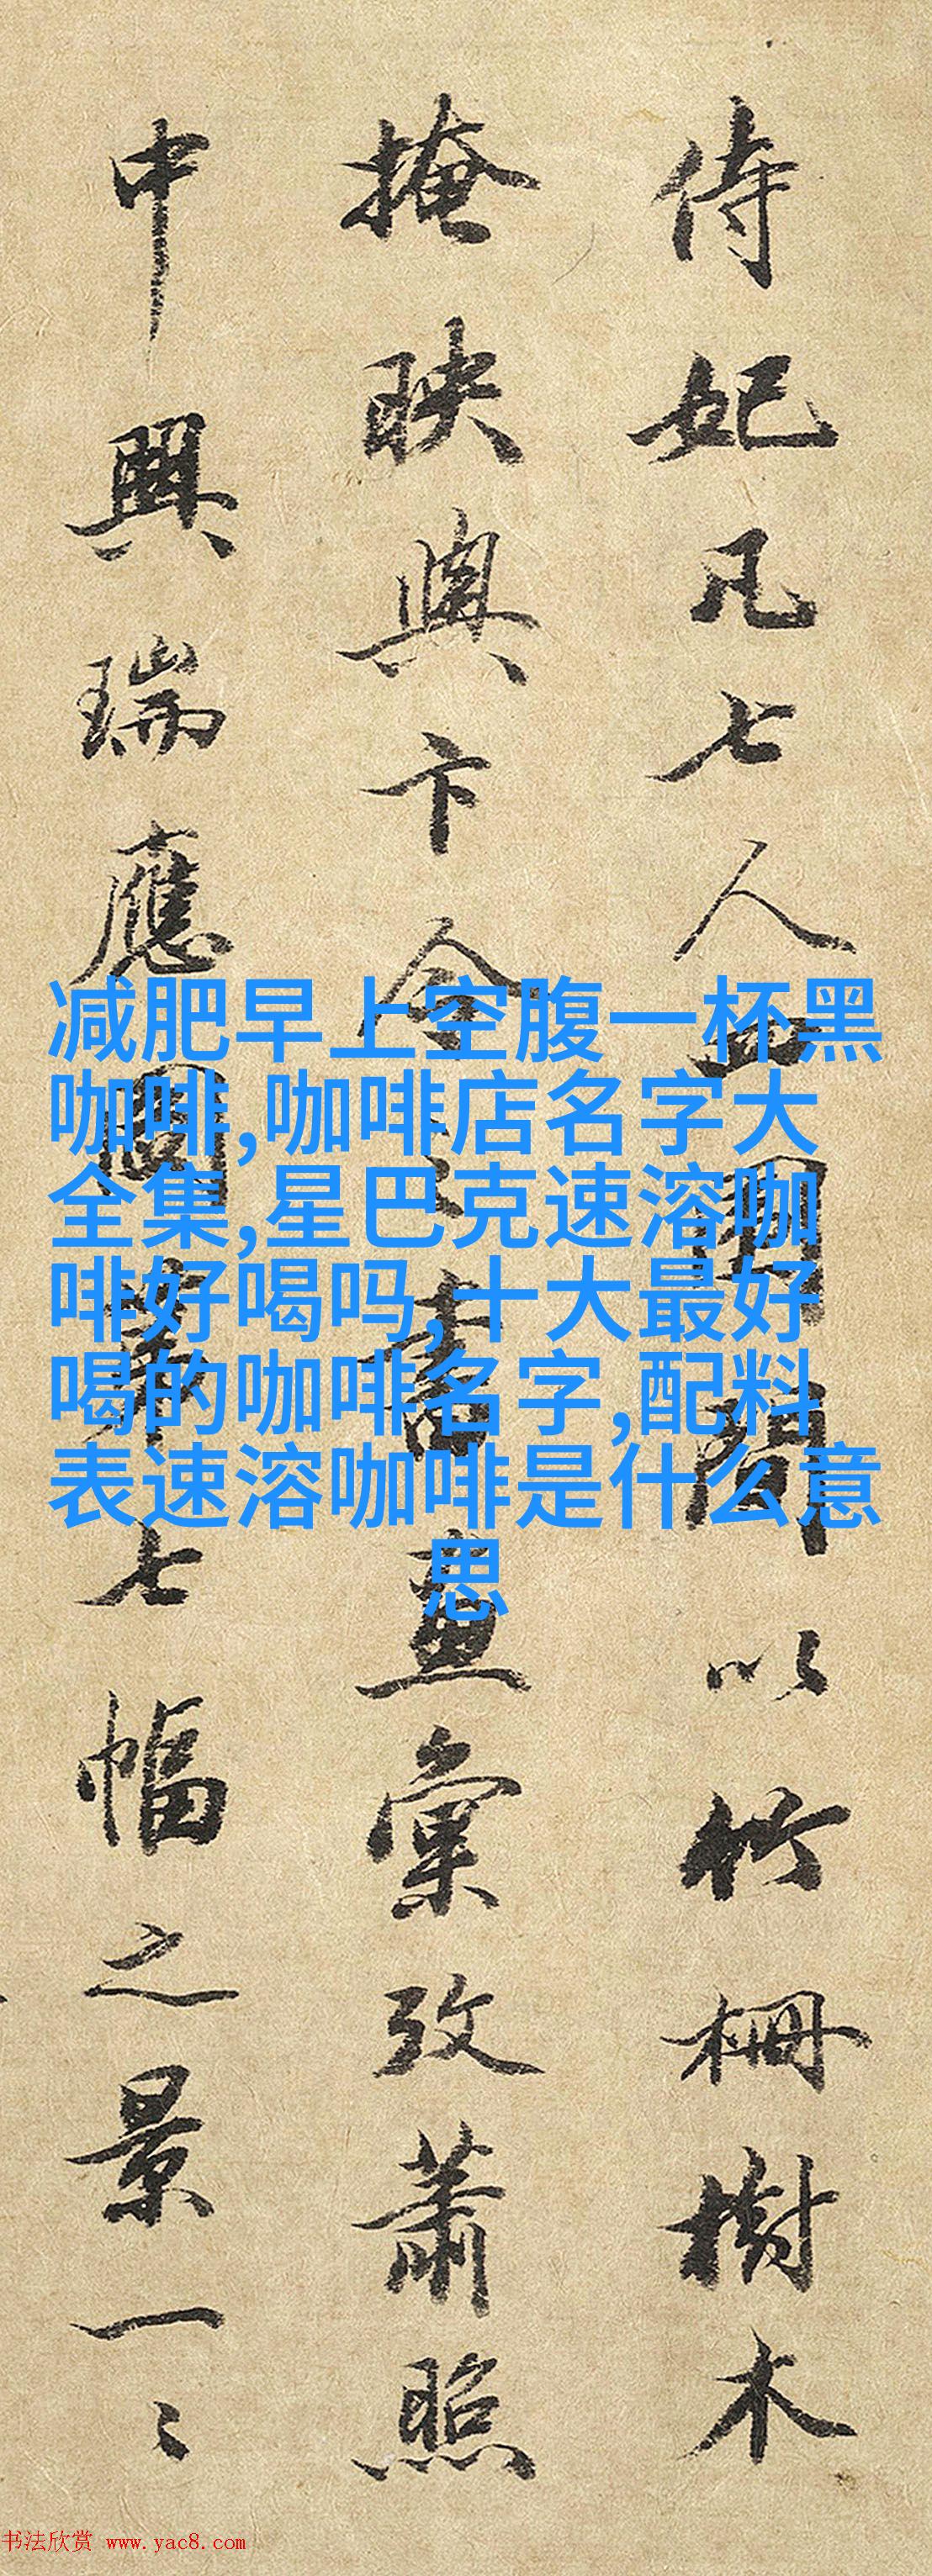 侍妃凡七人
以竹栅樹木
掩映與卞令之書畫彙攷蕭照
中興瑞應圖
七幅之景一〻
减肥早上空腹一杯黑
咖啡,咖啡店名字大
全集,星巴克速溶咖
啡好喝吗,十大最好
喝的咖啡名字,配料
表速溶咖啡是什么意
思
书法欣赏 www.yac8.com